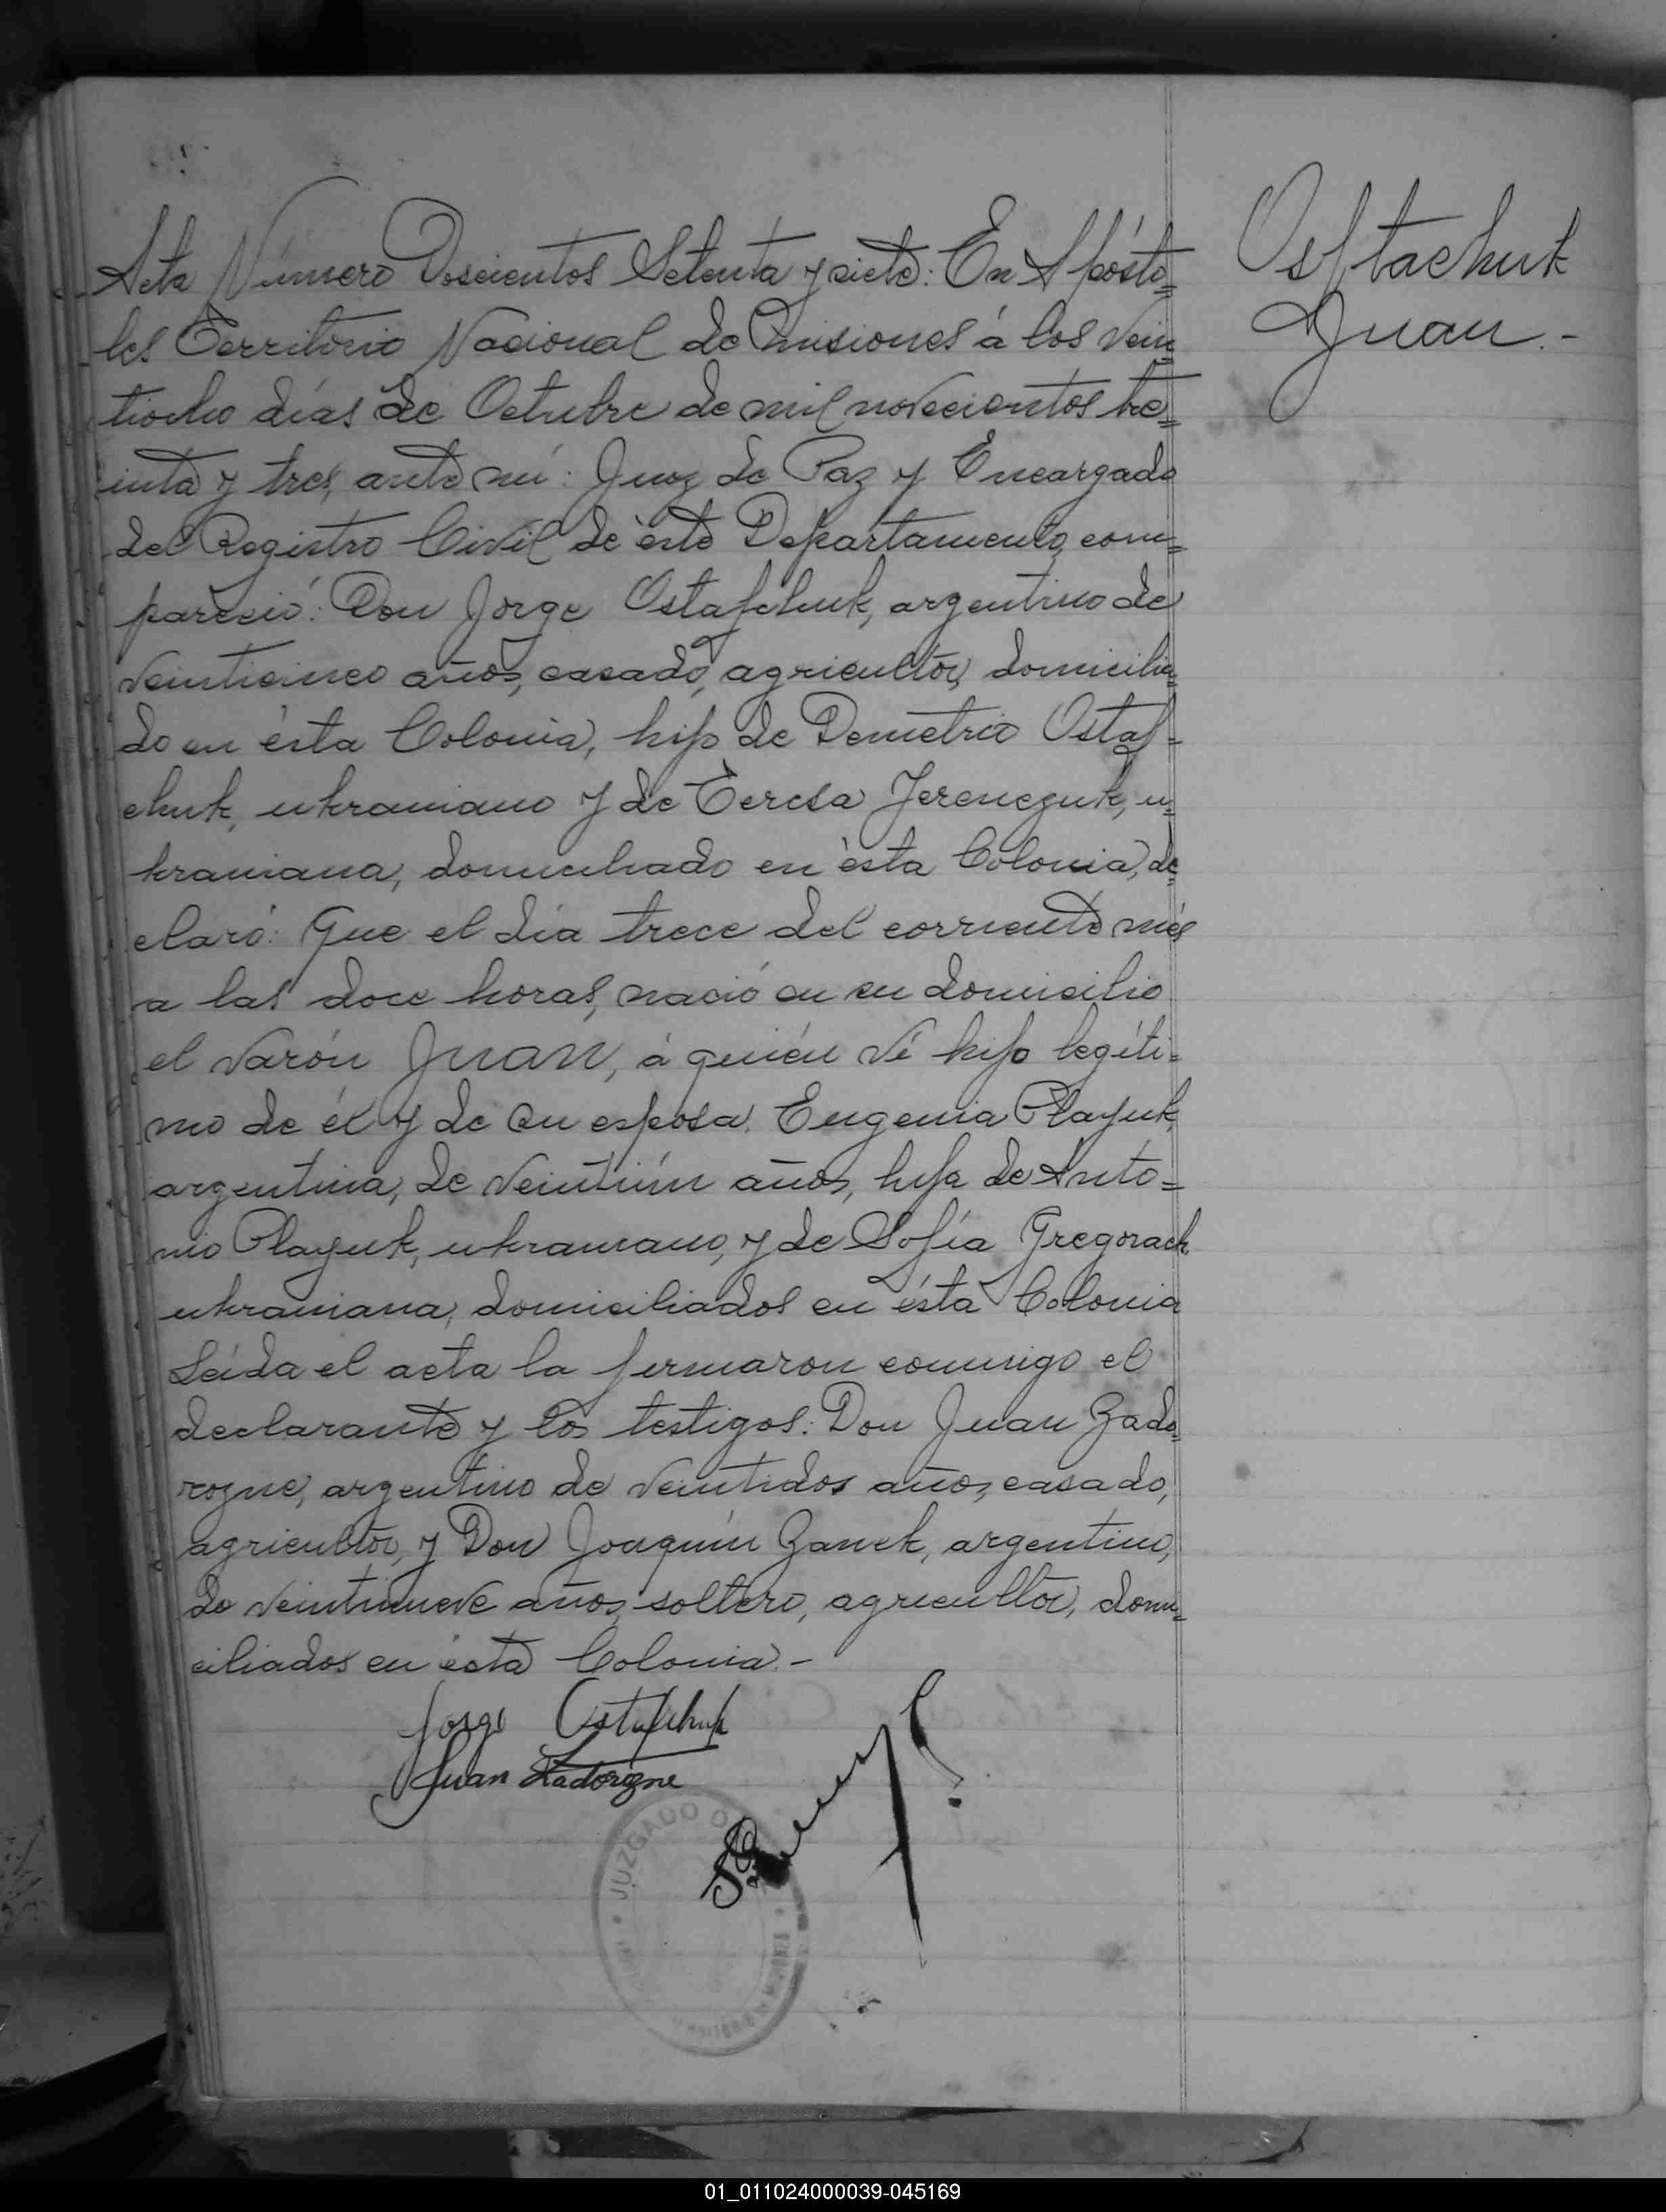 Acta Número Doscientos Setenta y siete: En Apósto=
les Territorio Nacional de Misiones á los vein=
tiocho días de Octubre de mil novecientos tre=
inta y tres, ante mi: Juez de Paz y Encargado
del Registro Civil de éste Departamento, com=
pareció: Don Jorge Ostafchuk, argentino de
veinticinco años, casado, agricultor, domicilia=
do en ésta Colonia, hijo de Demetrio Ostaf=
chuk, ukraniano y de Teresa Jerenczuk, u=
kraniana, domiciliado en ésta Colonia, de=
claró: Que el día trece del corriente més
a las doce horas, nació en su domicilio
el varón JUAN, á quién ví hijo legíti=
mo de él y de su esposa Eugenia Playuk,
argentina, de veintiún años, hija de Anto=
nio Playuk, ukraniano, y de Sofía Gregorach
ukraniana, domiciliados en ésta Colonia
Leída el acta la firmaron conmigo el
declarante y los testigos: Don Juan Zado=
rozne, argentino de veintidos años, casado,
agricultor, y Don Joaquín Zanek, argentino,
de veintinueve años, soltero, agricultor, domi=
ciliados en ésta Colonia.-
Jorge Ostafchuk
Juan Zadorozne
JUZGADO DE
Osftachuk
Juan.-
01_011024000039-045169